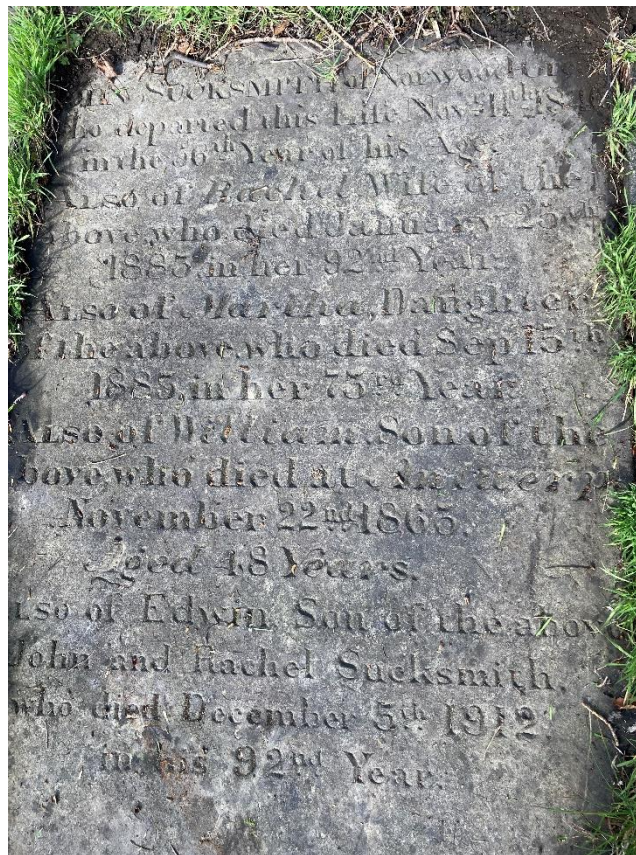 SUCKSMITH of Norwood Gre
who departed this Life Nov 11th 184
in the 56th Year of his Age.
Also of Rachel Wife of the
above, who died January 25th
1885, in her 92nd Year.
Also of Martha, Daughter
of the above, who died Sep 15th
1885, in her 73rd Year.
Also, of William, Son of the
bove, who died at Antwerp
November 22nd 1865.
Aged 48 Years.
lso of Edwin Son of the above
John and Rachel Sucksmith,
who died December 5th 1912.
in his 92nd Year.